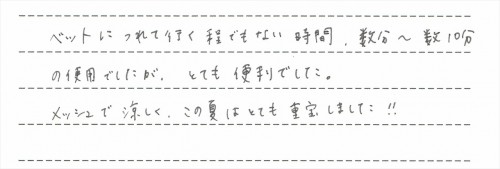 ベットにつれて行く程でもない時間、数分〜数10分
の使用でしたが、とても便利でした。
メッシュで涼しく、この夏はとても重宝しました!!